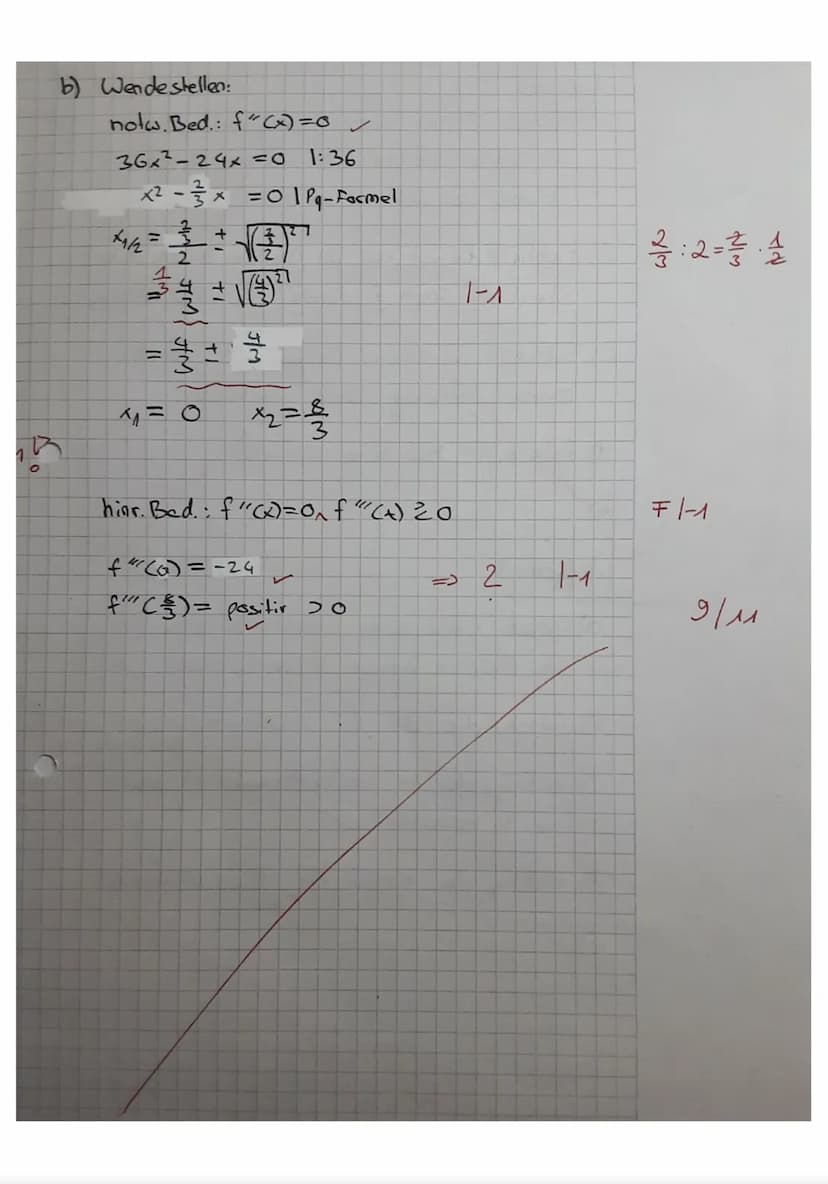 b) Wendestellen:
notw. Bed.: f''(x)=0 ✓
36x² - 24x = 0 |:36
x² - 2/3 x = 0 | Pq-Formel
x1/2 = (2/3)/2 ± √((2/3)/2)² 2/3 : 2 = 2/3 · 1/2
= 1/3 4/3 ± √(4/3)² |-1
= 4/3 ± 4/3
x1 = 0 x2 = 8/3
hinr. Bed.: f''(x)=0 ∧ f'''(x) ≷ 0 F |-1
f'''(0) = -24 ✓ => 2 |-1
f'''(8/3) = positiv > 0 ✓
9/11